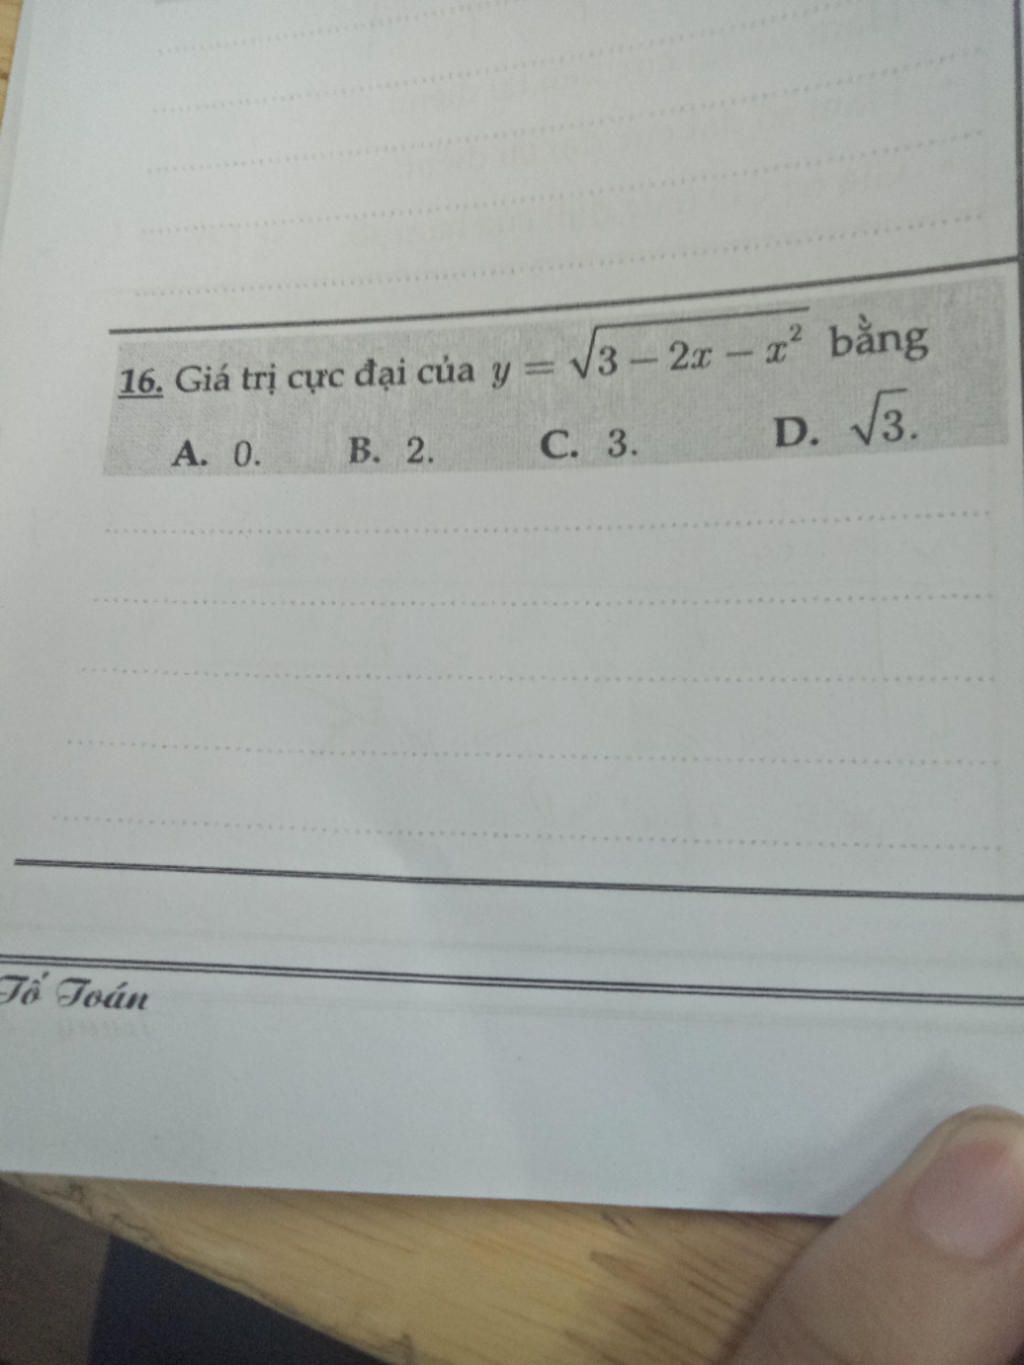 16. Giá trị cực đại của y = √(3 − 2x − x²) bằng
A. 0. B. 2. C. 3. D. √3.
Tổ Toán